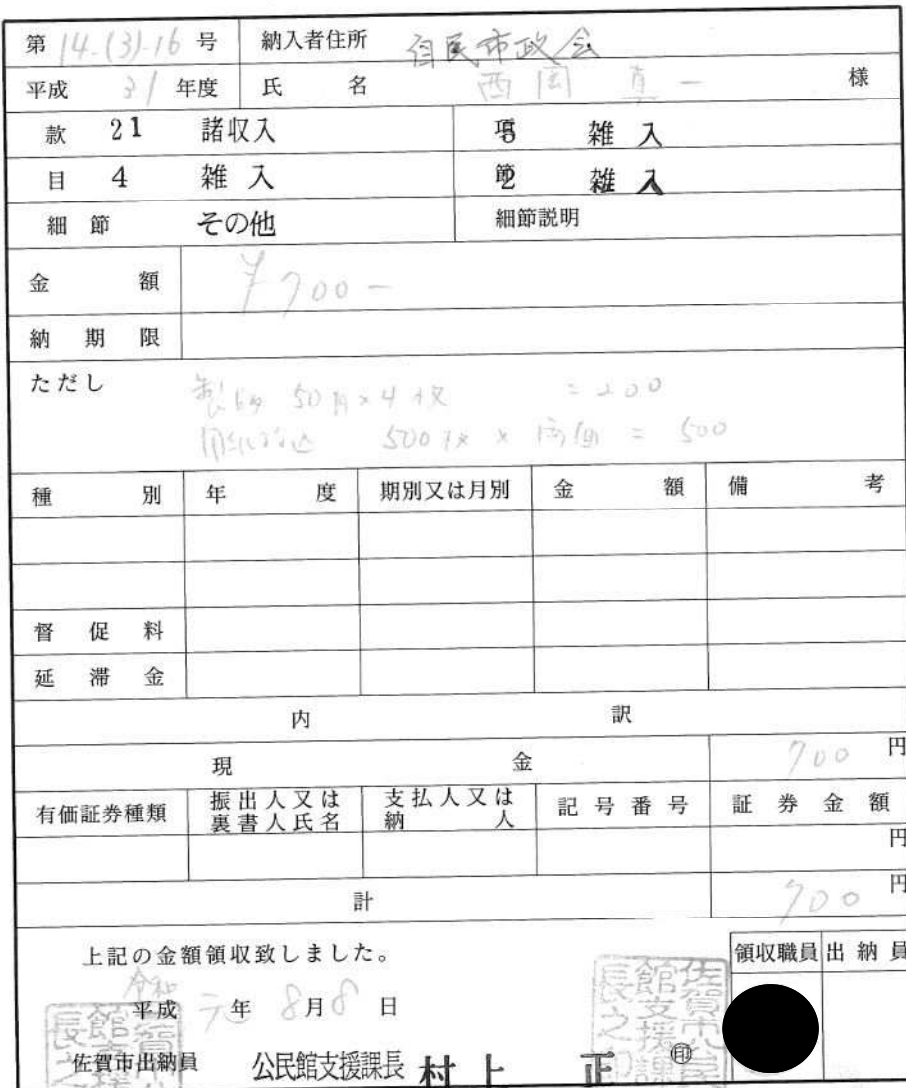 第 14-(3)-16 号 納入者住所 自民市政会
平成 31 年度 氏 名 西岡 真一 様
款 21 諸収入 項 5 雑入
目 4 雑入 節 2 雑入
細節 その他 細節説明
金 額 ¥700-
納期限
ただし 製版 50円×4枚 =200
500枚 × 両面 = 500
種 別 年 度 期別又は月別 金 額 備 考
督促料
延滞金
内 訳
現 金 700 円
有価証券種類 振出人又は裏書人氏名 支払人又は納人 記号番号 証券金額
円
計 700 円
上記の金額領収致しました。 領収職員 出納員
令和
平成 元年 8月8日
佐賀市出納員 公民館支援課長 村上 正 ㊞